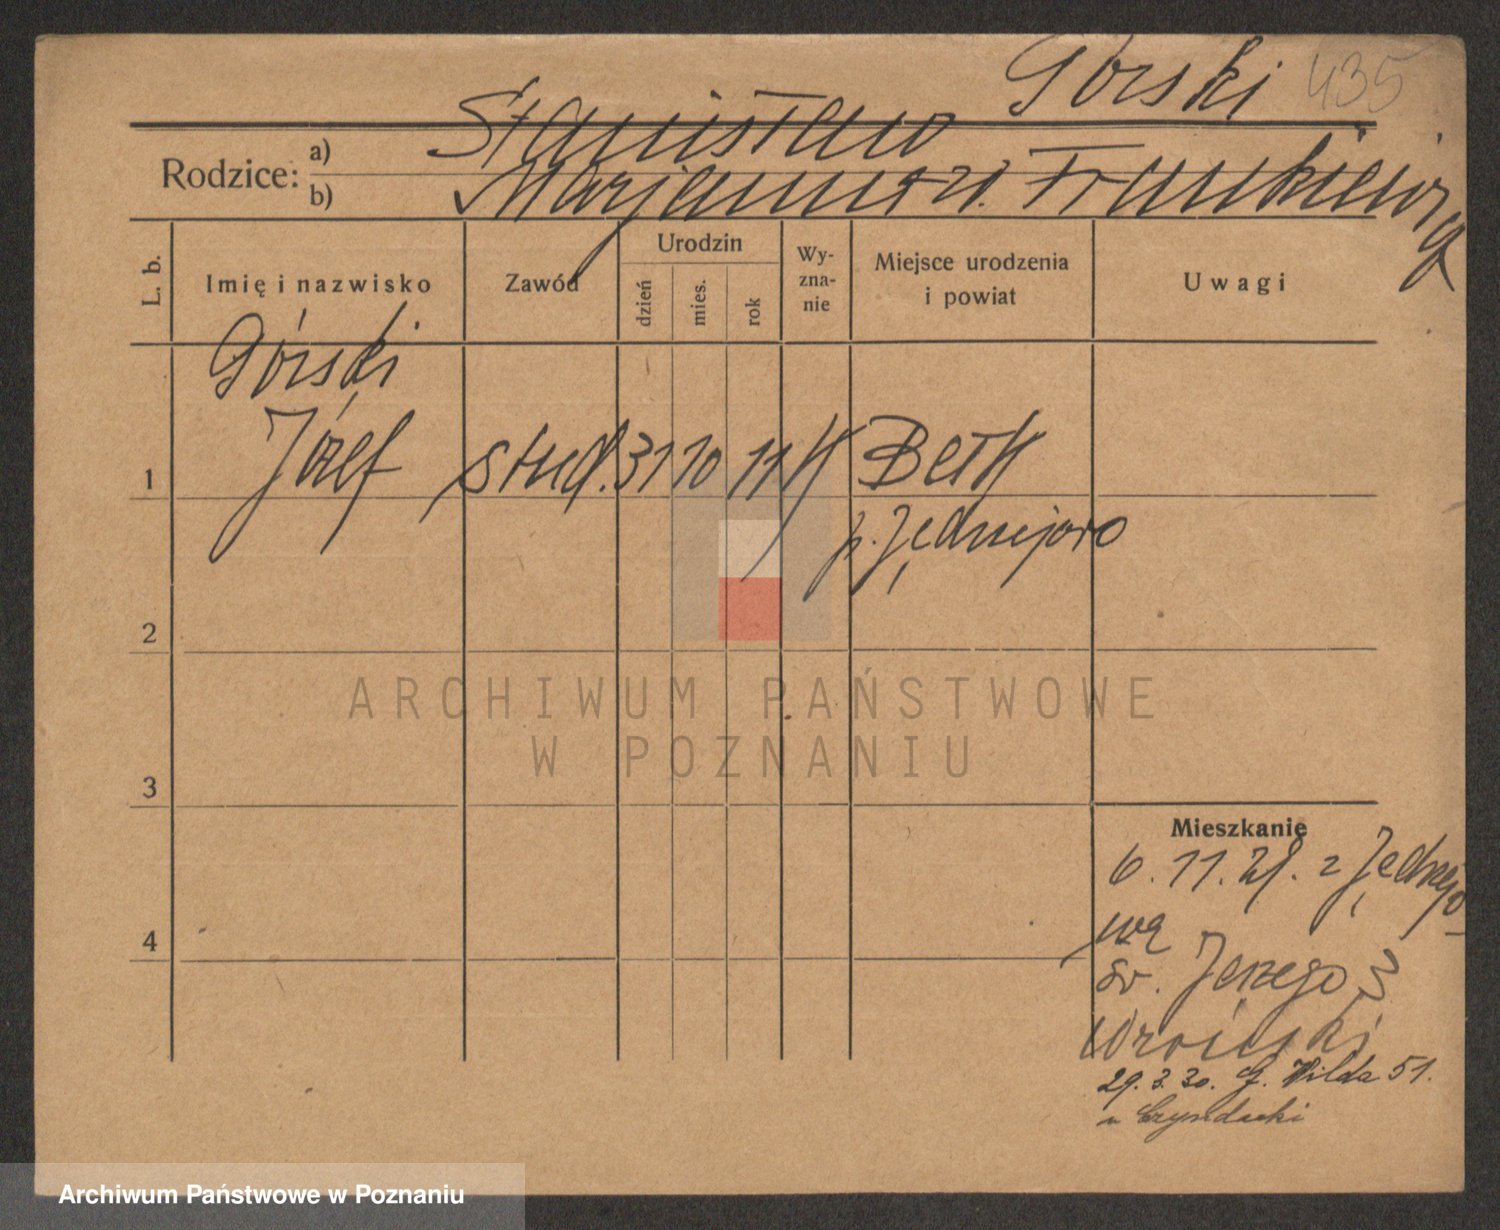 Górski 435
Stanisław
Rodzice: a)
b) Marjanna z d. Frankiewicz
L. b.
Imię i nazwisko
Zawód
Urodzin
dzień
mies.
rok
Wy-
zna-
nie
Miejsce urodzenia
i powiat
Uwagi
Górski
1 Józef stud. 31 10 11 k
p. Jędrzejowo
2
ARCHIWUM PAŃSTWOWE
W POZNANIU
3
Mieszkanie
6. 11. 29. z Jędrzejo-
4 wa
św. Jerzego 3
29. 3. 30. G. Wilda 51.
Archiwum Państwowe w Poznaniu